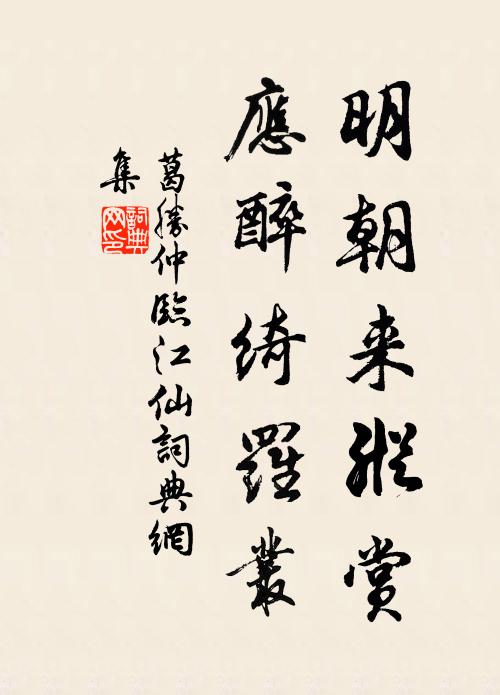 明朝来縱賞
應醉綺羅叢
葛勝仲臨江仙詞典網
集
詞典网印